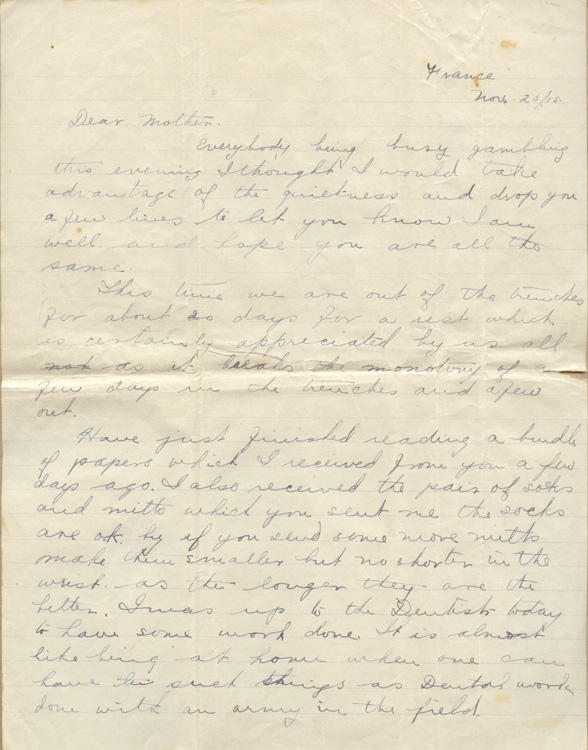 France
Nov 20/15
Dear Mother.
Everybody being busy gambling
this evening I thought I would take
advantage of the quietness and drop you
a few lines to let you know I am
well. and hope you are all the
same.
This time we are out of the trenches
for about 20 days for a rest which
is certainly appreciated by us all
not as it breaks the monotony of a
few days in the trenches and a few
out.
Have just finished reading a bundle
of papers which I received from you a few
days ago. I also received the pair of soks
and mitts which you sent me the socks
are ok. if you send some more mitts
make them smaller but no shorter in the
wrist. as the longer they are the
better. I was up to the Dentists today
to have some work done. It is almost
like being at home when one can
have such things as Dental work
done with an army in the field.